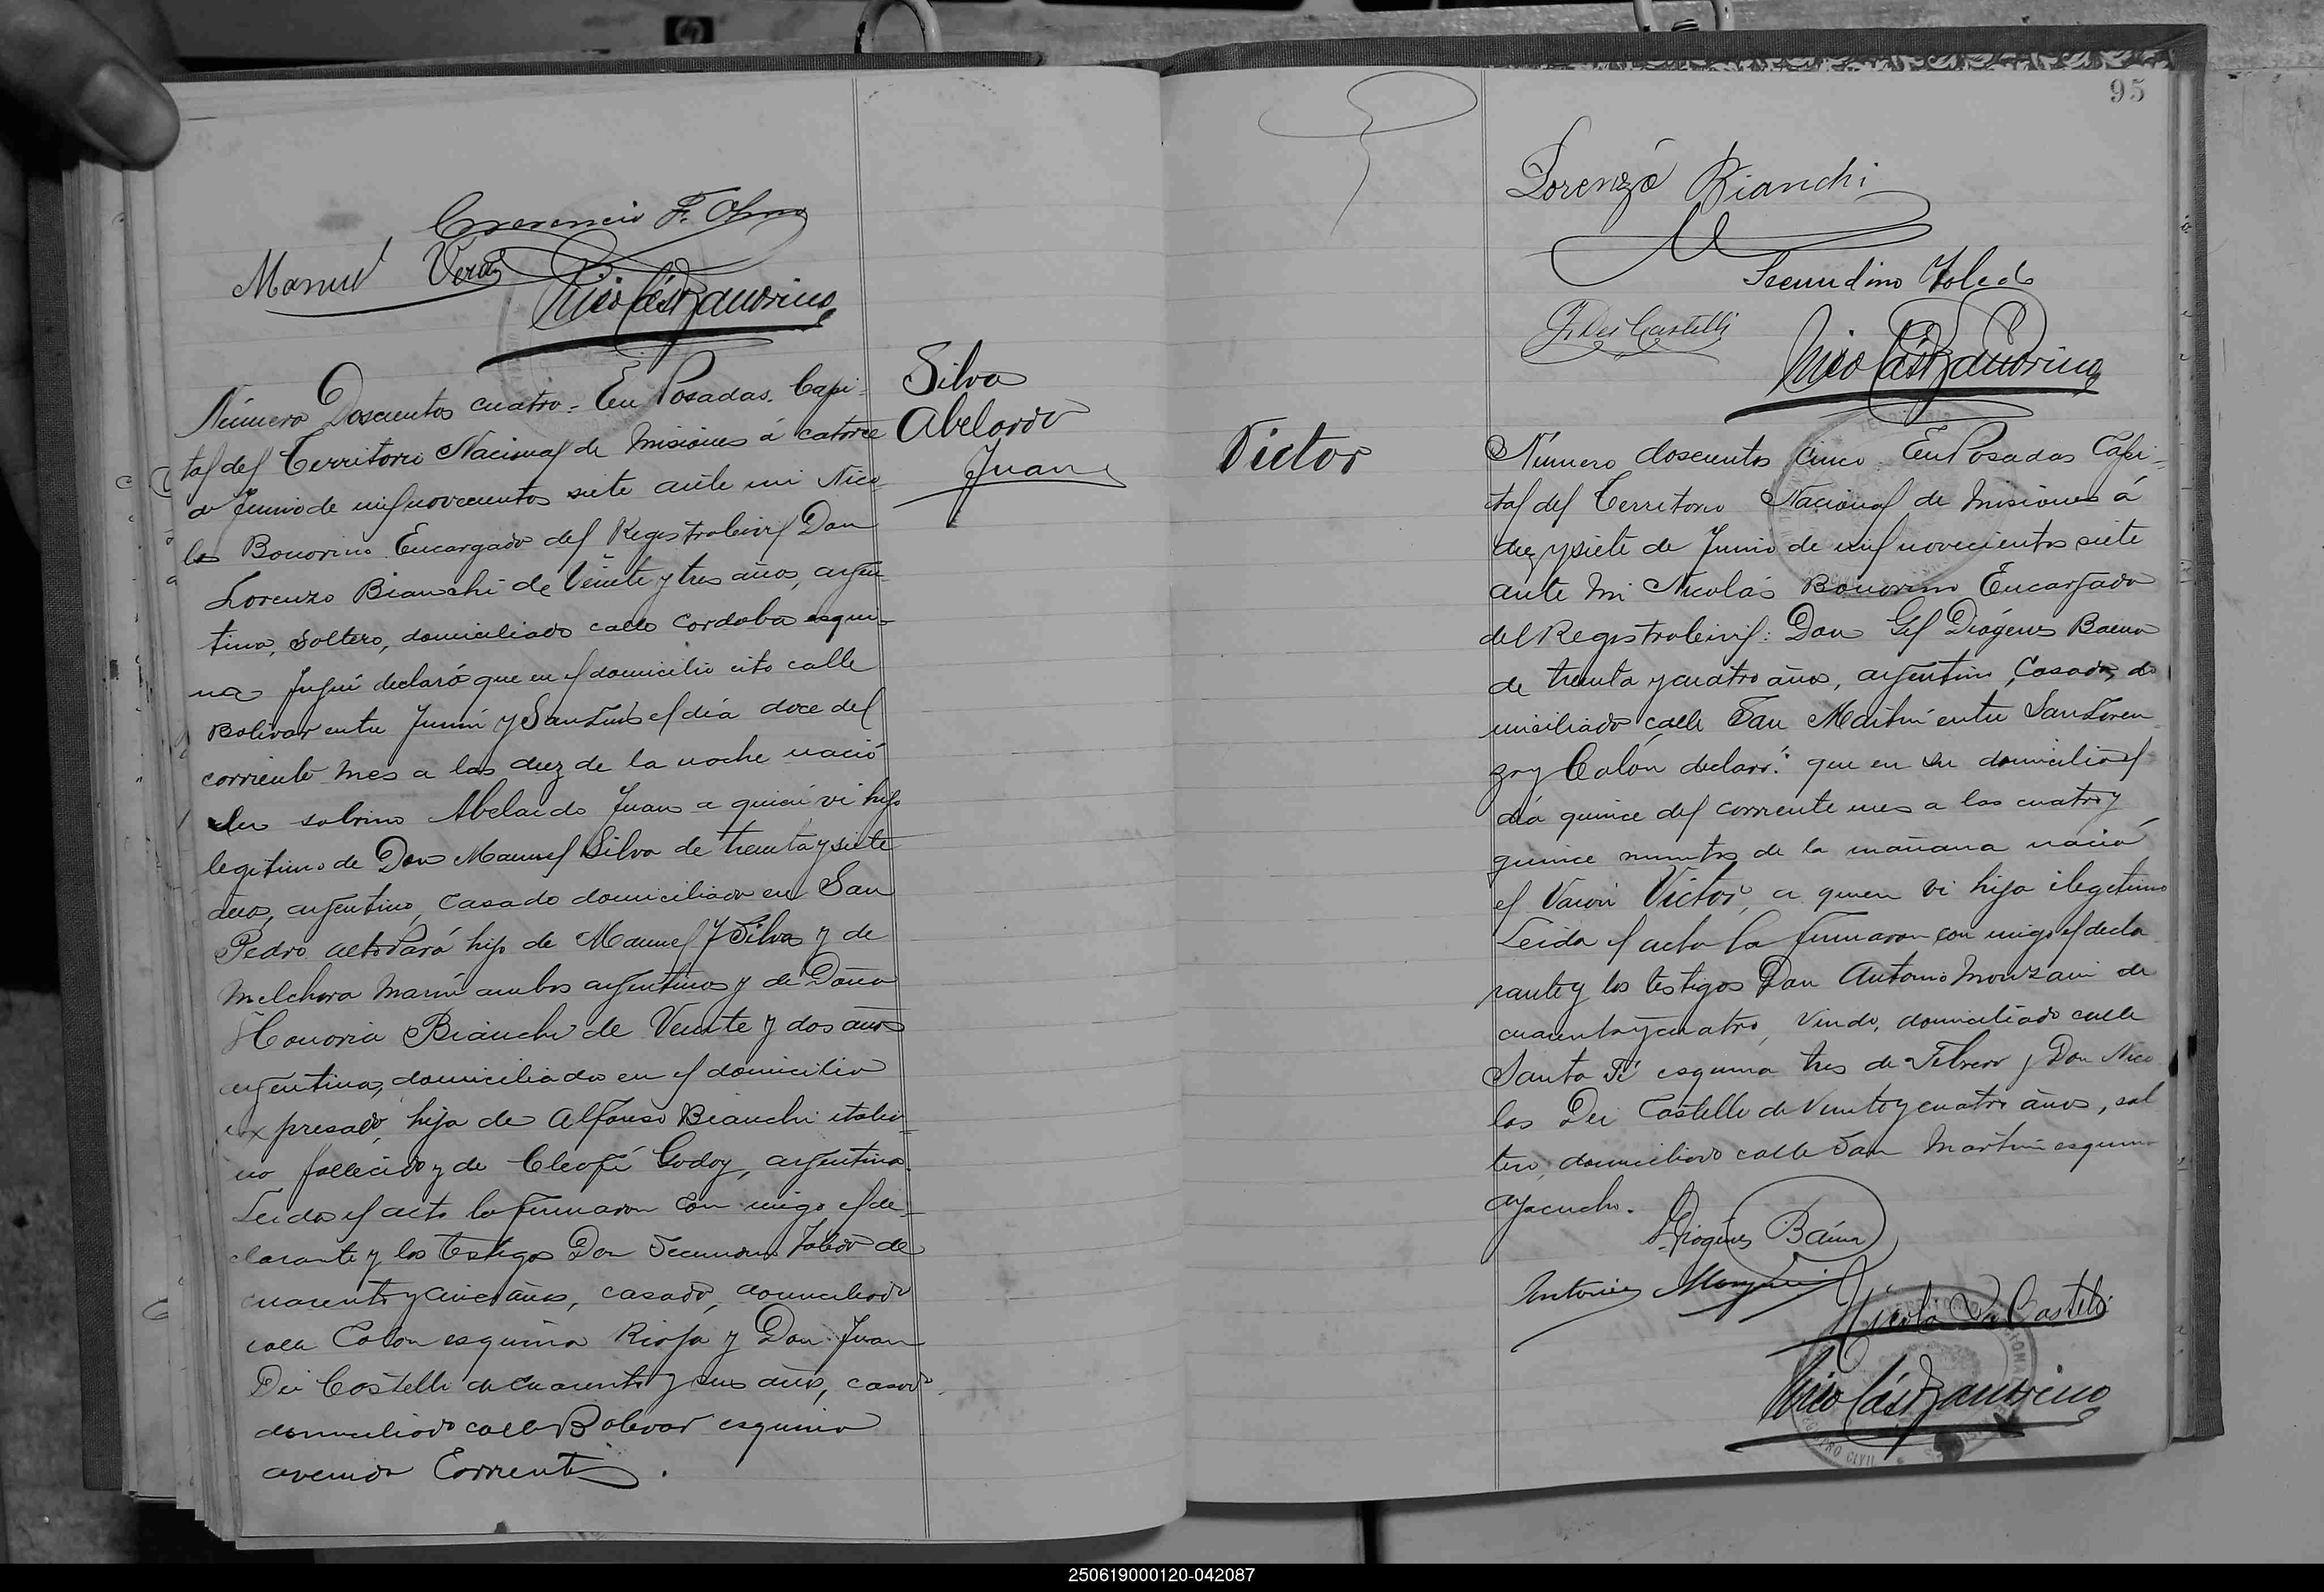 Manuel Vera
Nicolás Bonorino
Número Doscientos cuatro. En Posadas. Capi-
tal del Territorio Nacional de Misiones á catorce
de Junio de mil novecientos siete ante mi Nico
las Bonorino Encargado del Registro Civil Don
Lorenzo Bianchi de Veinte y tres años, argen-
tino, soltero, domiciliado calle Cordoba esqui-
na Jujui declaró que en el domicilio cito calle
Bolivar entre Junin y San Luis el día doce del
corriente mes a las diez de la noche nació
su sobrino Abelardo Juan a quien vi hijo
legitimo de Don Manuel Silva de treinta y siete
años, argentino, casado domiciliado en San
Pedro alto Pará hijo de Manuel J Silva y de
Melchora Marin ambos argentinos y de Doña
Honoria Bianchi de Veinte y dos años
argentina, domiciliada en el domicilio
expresado, hija de Alfonso Bianchi italia-
no fallecido y de Cleofé Godoy, argentina.
Leida el acta la firmaron con migo el de-
clarante y los testigos Don Secundino Toledo de
cuarenta y cinco años, casado, domiciliado
calle Colon esquina Rioja y Don Juan
Dei Castelli de cuarenta y seis años, casado
domiciliado calle Bolivar esquina
avenida Corrientes.
Silva
Abelardo
Juan
95
Lorenzo Bianchi
Secundino Toledo
J. Dei Castelli
Nicolás Bonorino
Víctor
Número doscientos cinco. En Posadas Capi-
tal del Territorio Nacional de Misiones á
diez y siete de Junio de mil novecientos siete
ante mi Nicolás Bonorino Encargado
del Registro Civil: Don Gil Diógenes Baena
de treinta y cuatro años, argentino, casado, do
miciliado calle San Martin entre San Loren
zo y Colón declaró: que en su domicilio el
día quince del corriente mes a las cuatro y
quince minutos de la mañana nació
el Varon Víctor, a quien vi hijo ilegitimo
Leida el acta la firmaron con migo el decla
rante y los testigos Don Antonio Monzani de
cuarenta y cuatro, viudo, domiciliado calle
Santa Fé esquina tres de Febrero y Don Nico
las Dei Castelli de Veinte y cuatro años, sol
tero, domiciliado calle San Martin esquina
Ayacucho.
Diógenes Baena
Antonio Monzani
Nicola Dei Castelli
Nicolás Bonorino
250619000120-042087